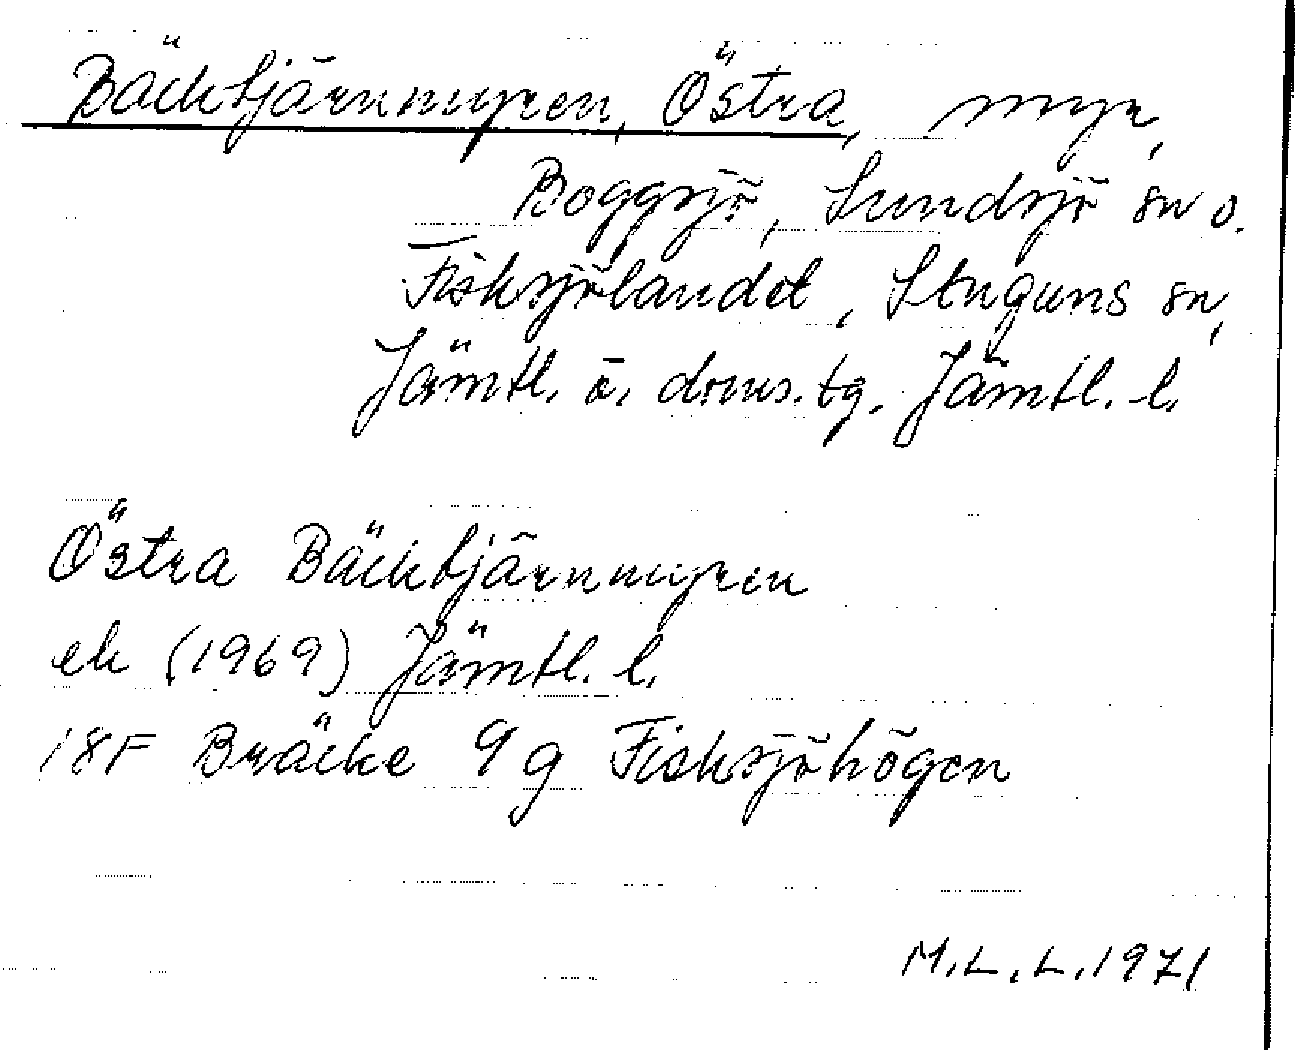 Bäcktjärnmyren, Östra, myr,
Boggsjö, Sundsjö sn o.
Fisksjölandet, Stuguns sn,
Jämtl. ö. doms. tg. Jämtl. l.
Östra Bäcktjärnmyren
ek (1969) Jämtl. l.
18F Bräcke 9g Fisksjöhögen
M.L.L. 1971